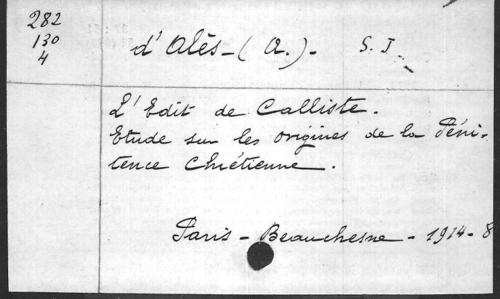 282
130
4
d'Alès - (A.) - S. J
L'Edit de Calliste.
Etude sur les origines de la Péni-
tence Chrétienne.
Paris - Beauchesne - 1914 - 8